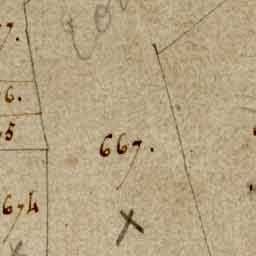 7.
6.
5
667.
674